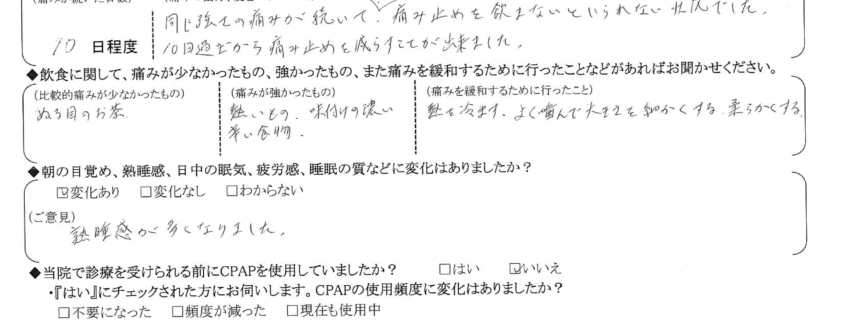 同じ強さの痛みが続いて、痛み止めを飲まないといられない状況でした。
10 日程度
10日過ぎから痛み止めを減らすことが出来ました。
◆飲食に関して、痛みが少なかったもの、強かったもの、また痛みを緩和するために行ったことなどがあればお聞かせください。
(比較的痛みが少なかったもの) (痛みが強かったもの) (痛みを緩和するために行ったこと)
ぬる目のお茶 熱いもの、味付けの濃い 熱を冷ます、よく噛んで大きさを細かくする、柔らかくする
辛い食物。
◆朝の目覚め、熟睡感、日中の眠気、疲労感、睡眠の質などに変化はありましたか?
☑変化あり □変化なし □わからない
(ご意見)
熟睡感が多くなりました。
◆当院で診療を受けられる前にCPAPを使用していましたか? □はい ☑いいえ
・『はい』にチェックされた方にお伺いします。CPAPの使用頻度に変化はありましたか?
□不要になった □頻度が減った □現在も使用中